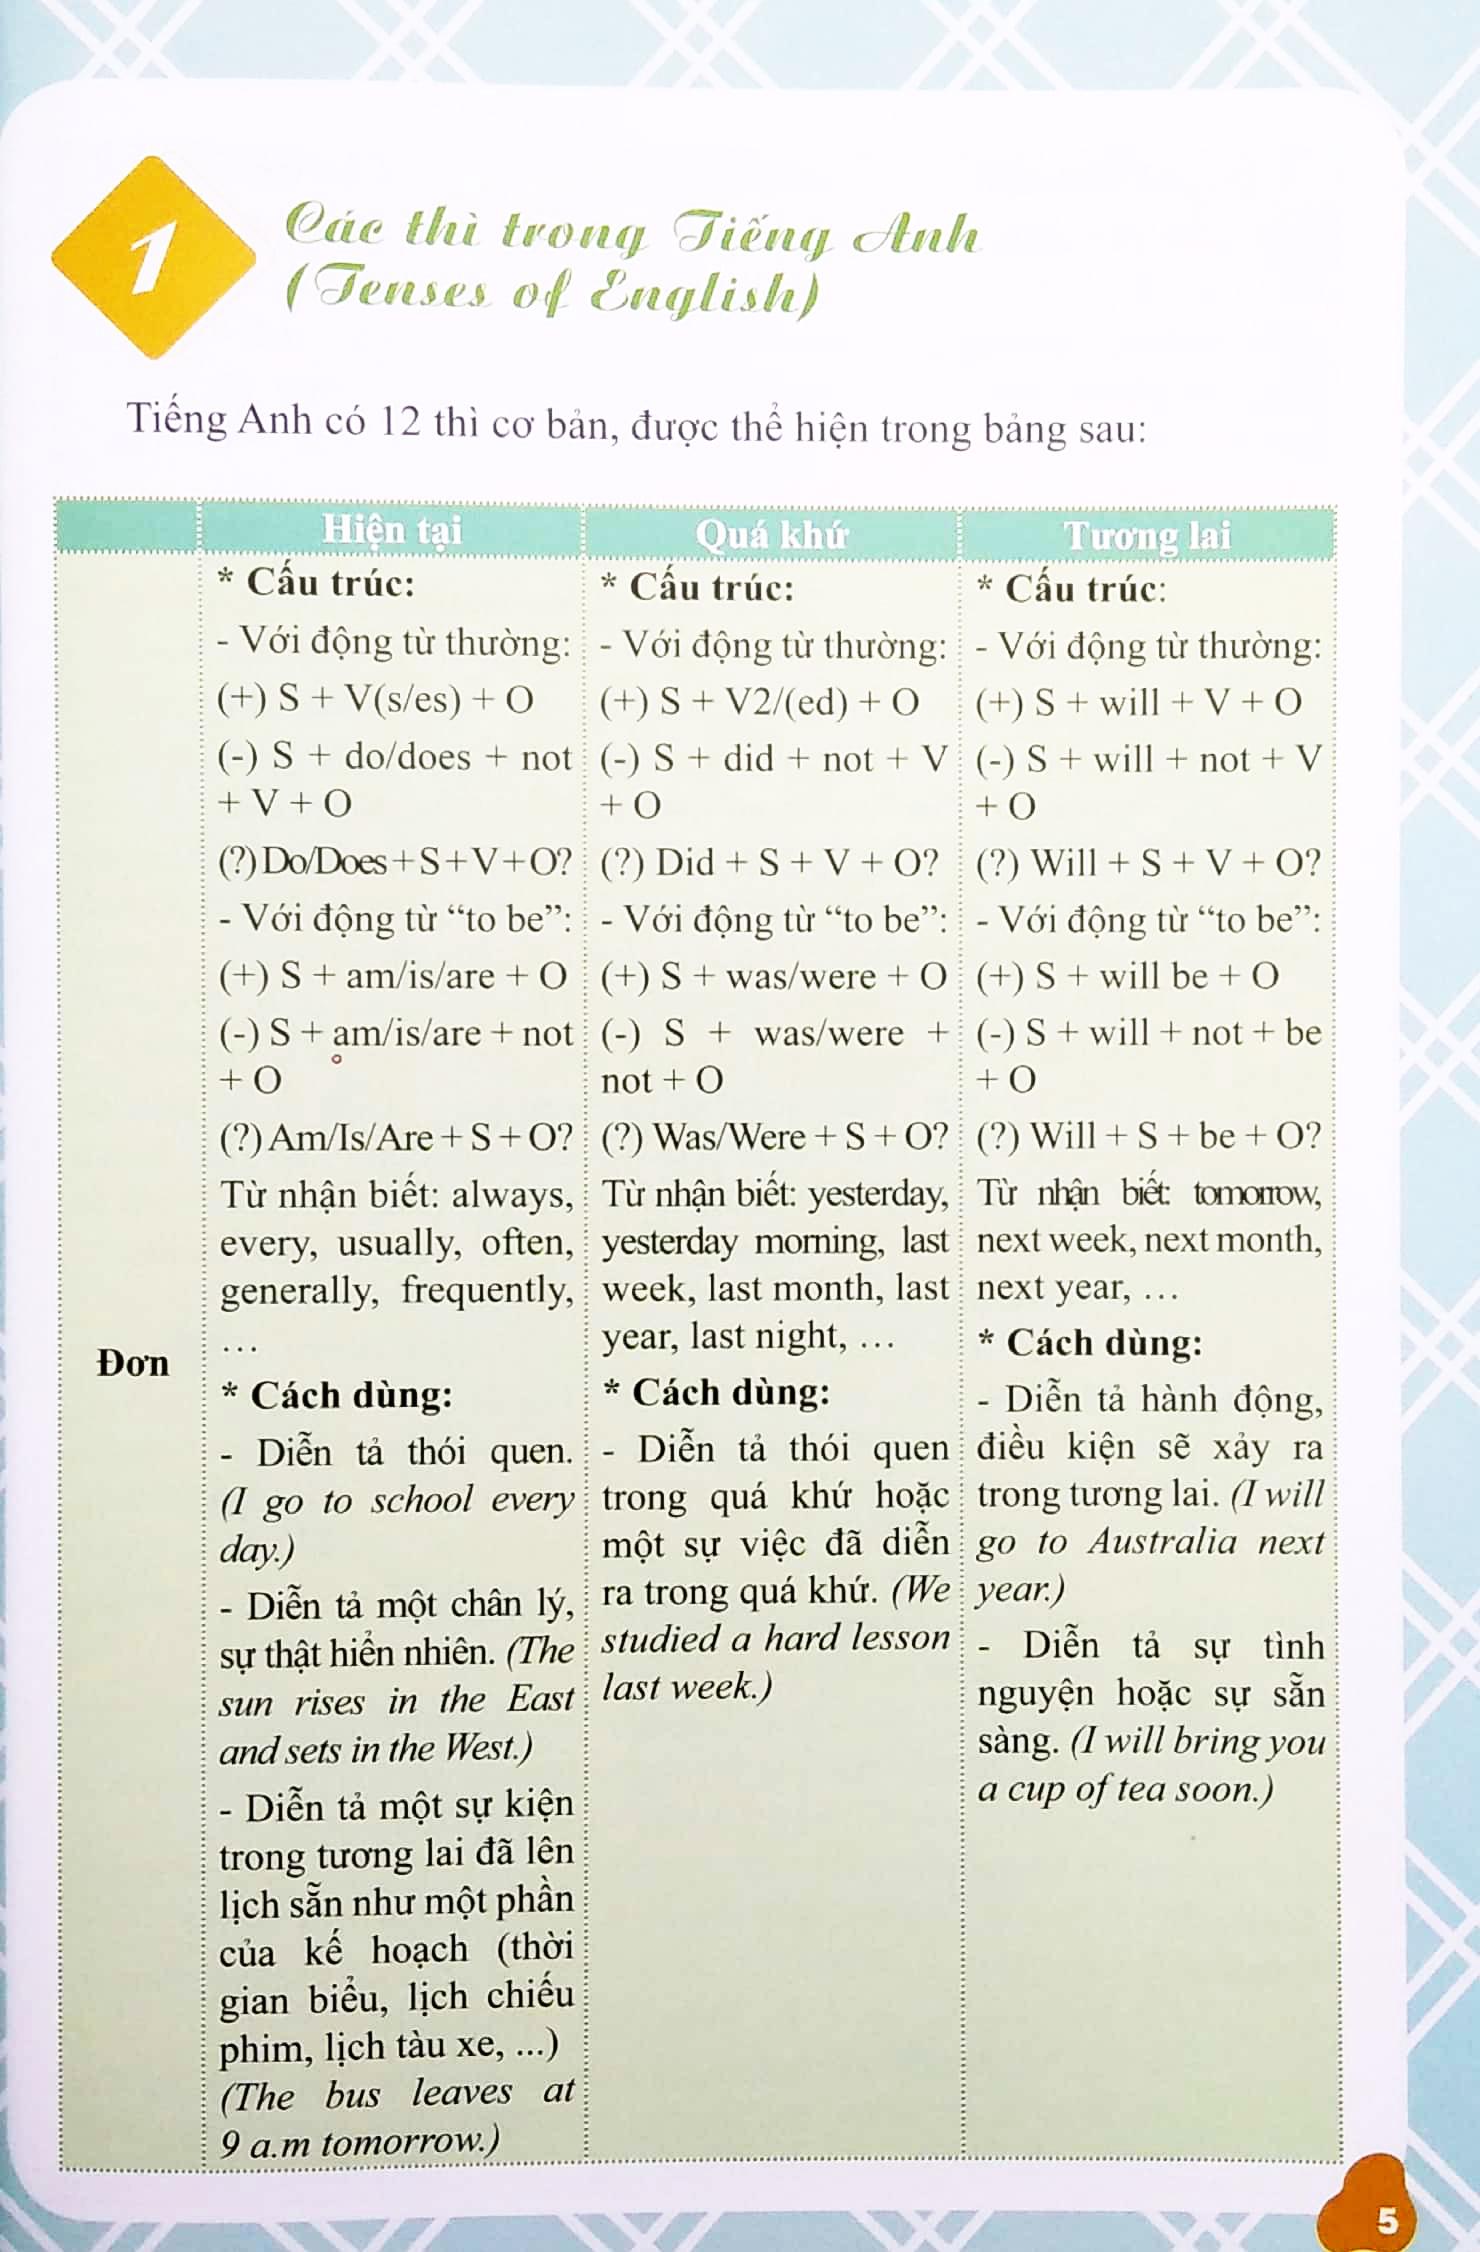 1
Các thì trong Tiếng Anh
(Tenses of English)
Tiếng Anh có 12 thì cơ bản, được thể hiện trong bảng sau:
Hiện tại
Quá khứ
Tương lai
Đơn
* Cấu trúc:
- Với động từ thường:
(+) S + V(s/es) + O
(-) S + do/does + not
+ V + O
(?) Do/Does + S + V + O?
- Với động từ “to be”:
(+) S + am/is/are + O
(-) S + am/is/are + not
+ O
(?) Am/Is/Are + S + O?
Từ nhận biết: always,
every, usually, often,
generally, frequently,
…
* Cách dùng:
- Diễn tả thói quen.
(I go to school every
day.)
- Diễn tả một chân lý,
sự thật hiển nhiên. (The
sun rises in the East
and sets in the West.)
- Diễn tả một sự kiện
trong tương lai đã lên
lịch sẵn như một phần
của kế hoạch (thời
gian biểu, lịch chiếu
phim, lịch tàu xe, ...)
(The bus leaves at
9 a.m tomorrow.)
* Cấu trúc:
- Với động từ thường:
(+) S + V2/(ed) + O
(-) S + did + not + V
+ O
(?) Did + S + V + O?
- Với động từ “to be”:
(+) S + was/were + O
(-) S + was/were +
not + O
(?) Was/Were + S + O?
Từ nhận biết: yesterday,
yesterday morning, last
week, last month, last
year, last night, …
* Cách dùng:
- Diễn tả thói quen
trong quá khứ hoặc
một sự việc đã diễn
ra trong quá khứ. (We
studied a hard lesson
last week.)
* Cấu trúc:
- Với động từ thường:
(+) S + will + V + O
(-) S + will + not + V
+ O
(?) Will + S + V + O?
- Với động từ “to be”:
(+) S + will be + O
(-) S + will + not + be
+ O
(?) Will + S + be + O?
Từ nhận biết: tomorrow,
next week, next month,
next year, …
* Cách dùng:
- Diễn tả hành động,
điều kiện sẽ xảy ra
trong tương lai. (I will
go to Australia next
year.)
- Diễn tả sự tình
nguyện hoặc sự sẵn
sàng. (I will bring you
a cup of tea soon.)
5